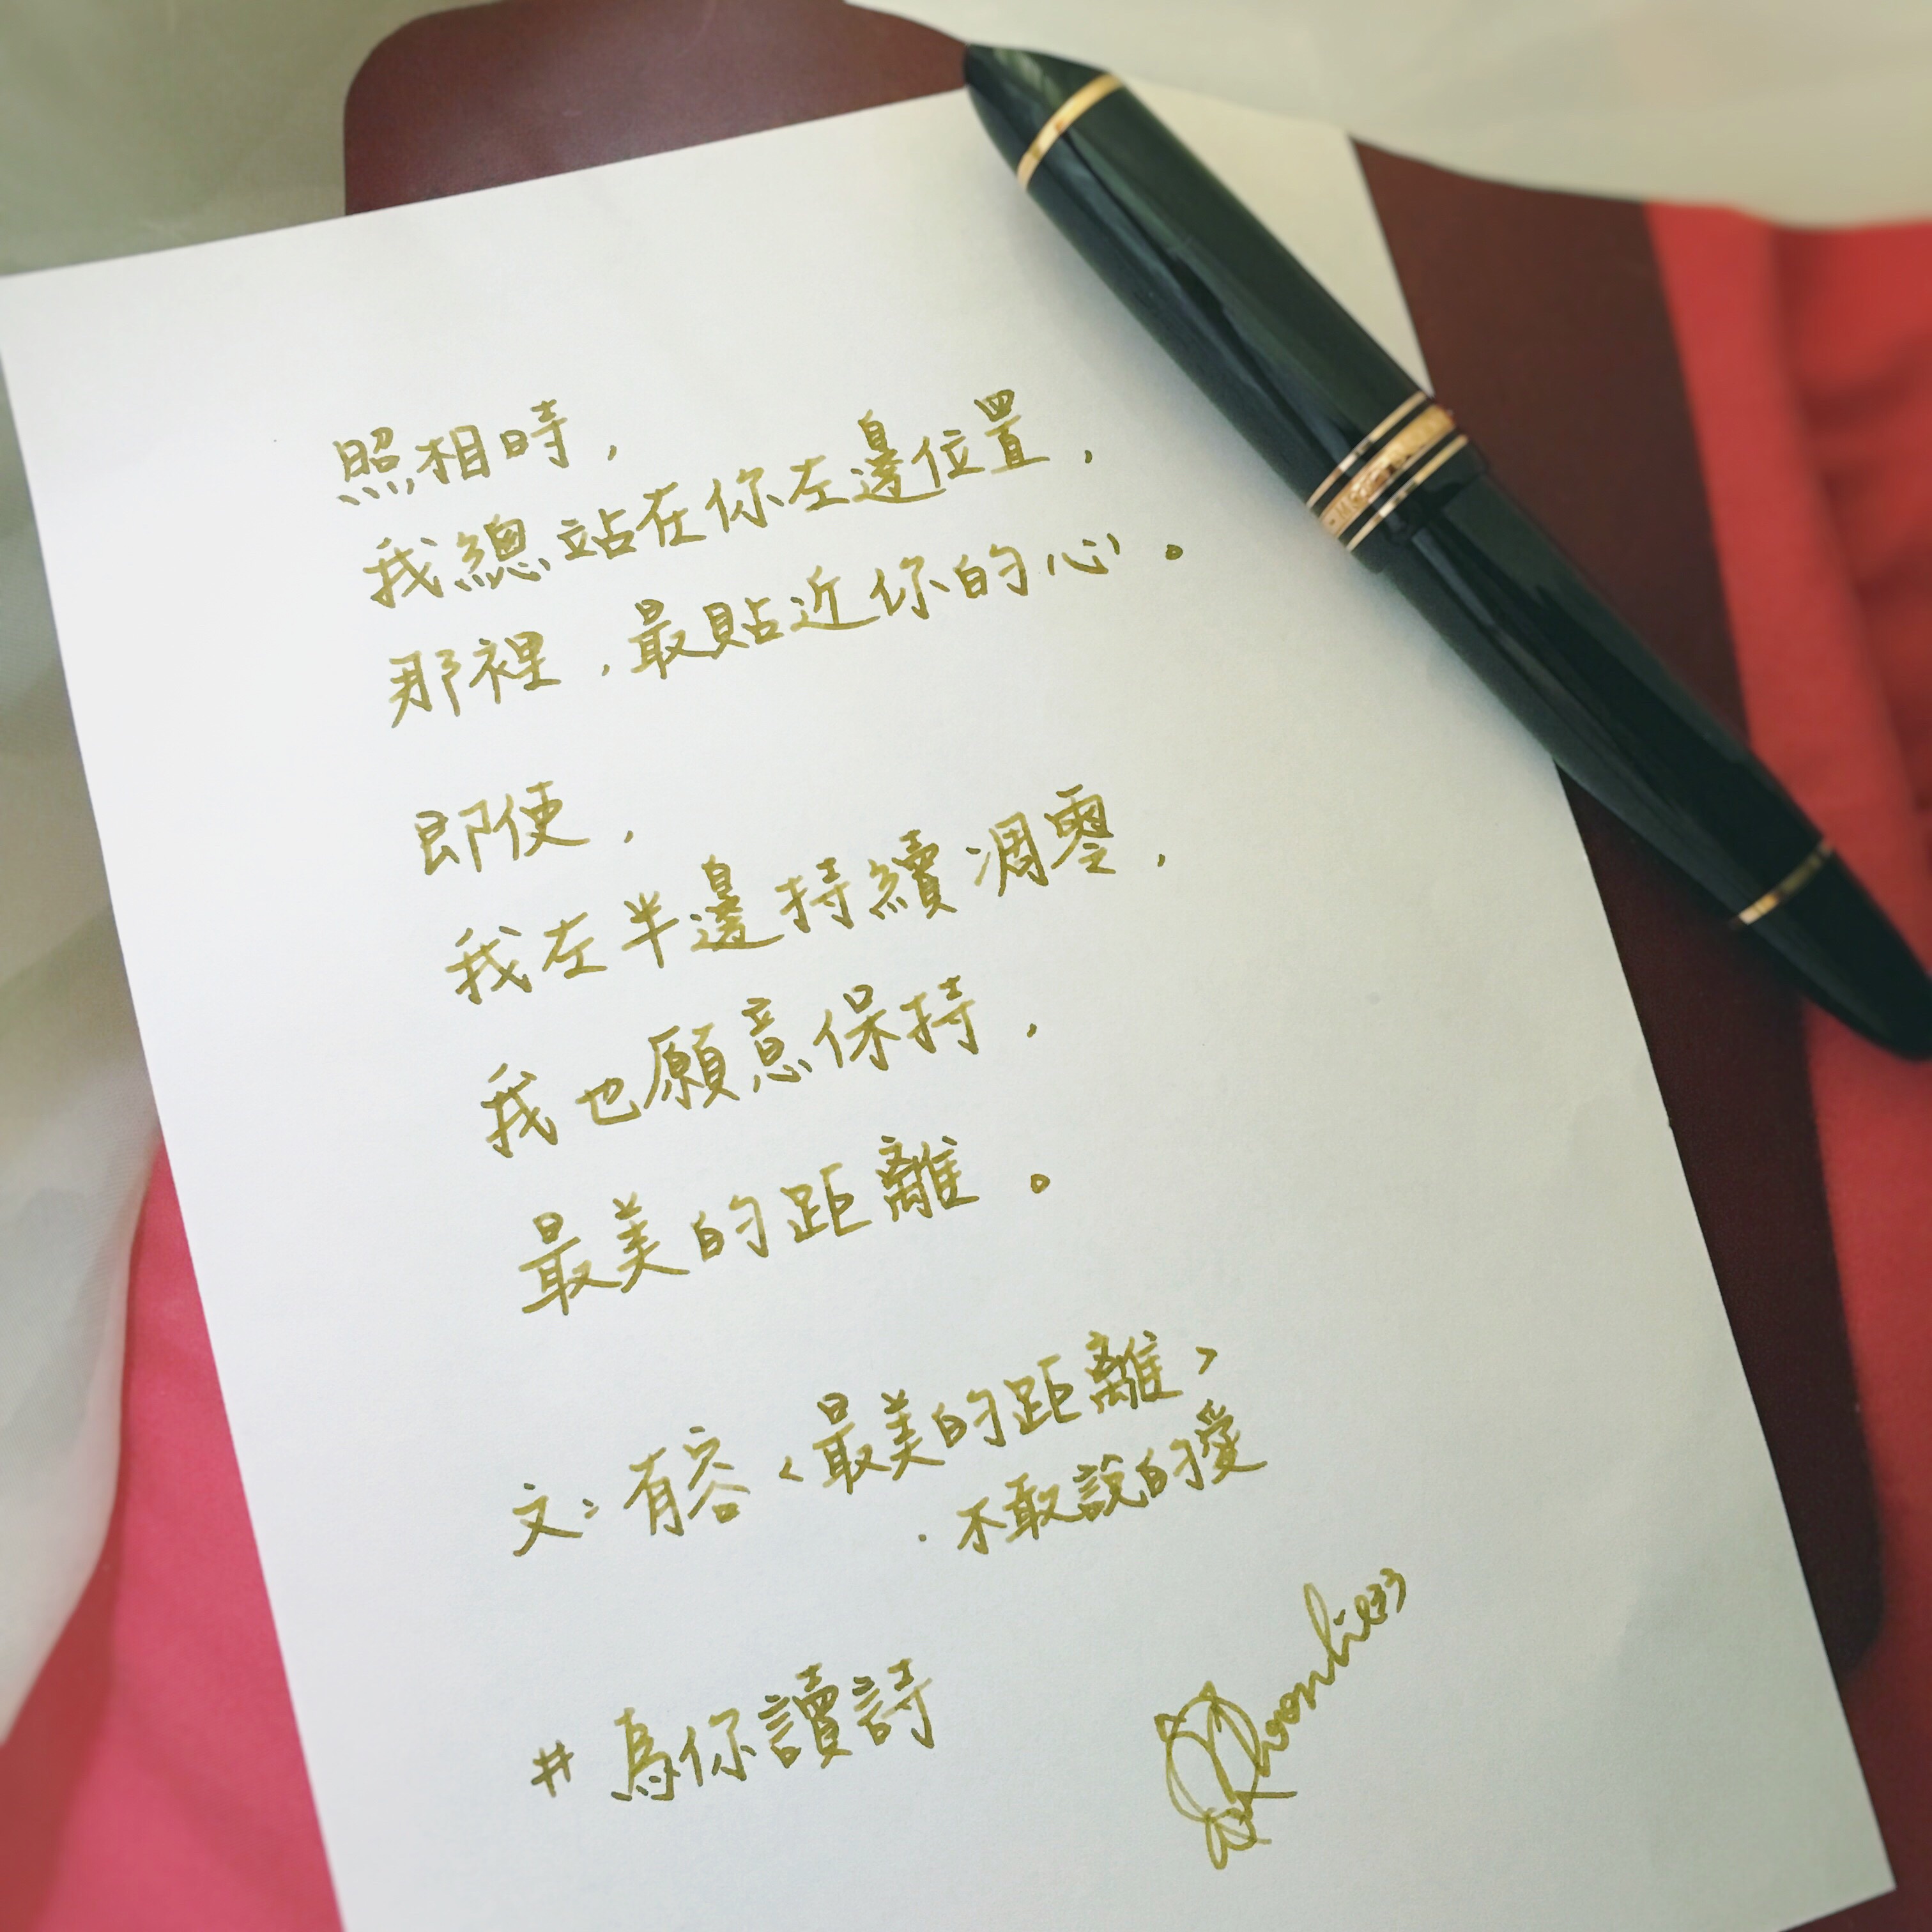 照相時，
我總站在你左邊位置，
那裡，最貼近你的心。
即使，
我左半邊持續凋零，
我也願意保持，
最美的距離。
文：有容〈最美的距離〉
．不敢說的愛
#為你讀詩